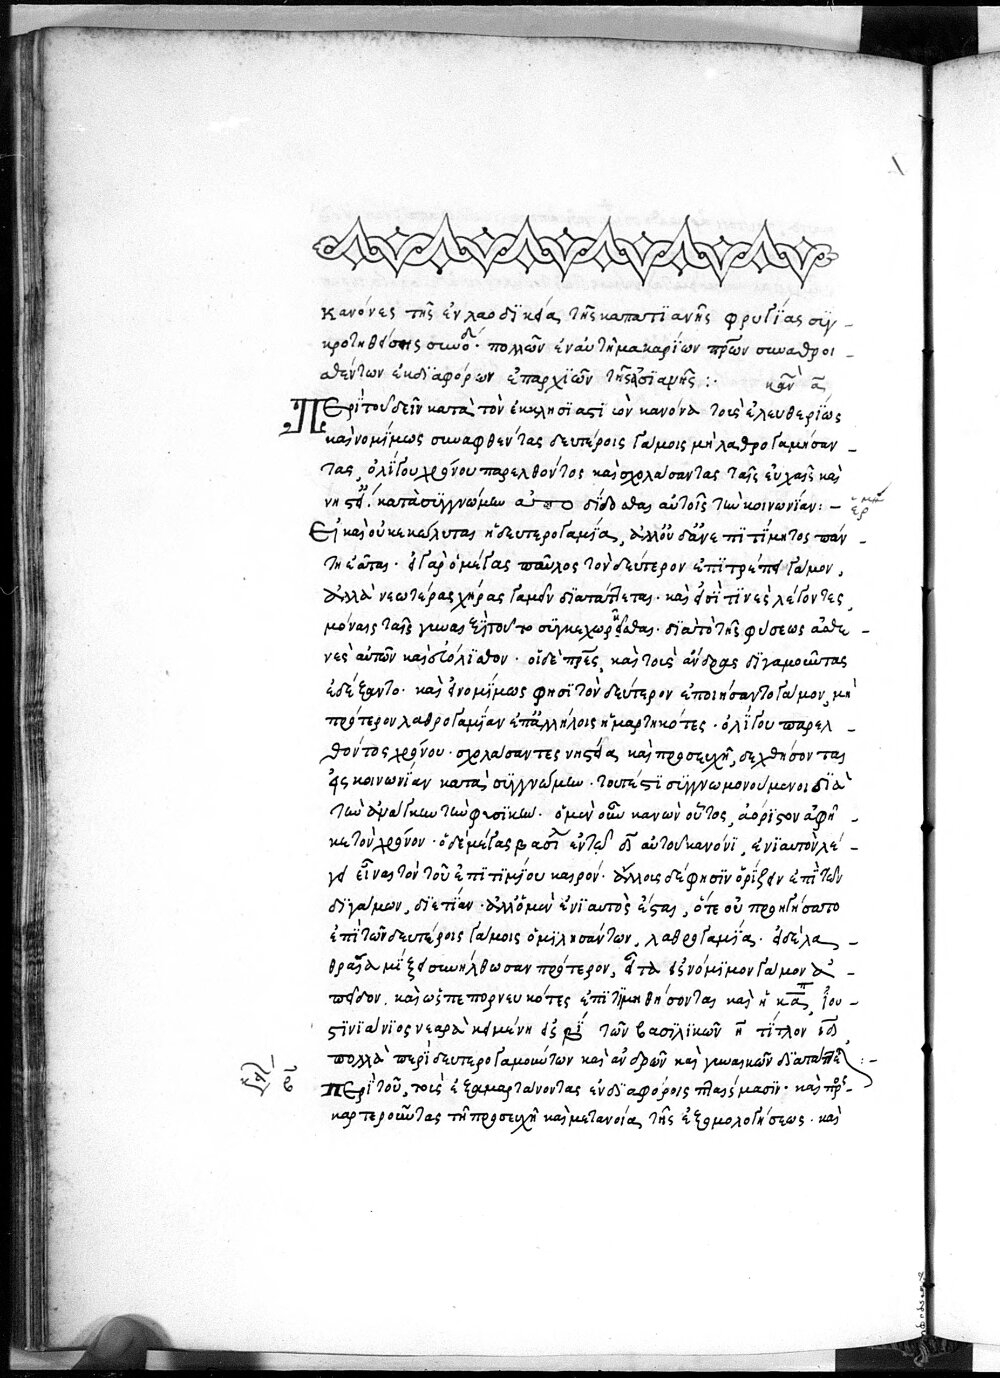 κανόνες τῆς ἐν λαοδικεία, τῆς καπατιανῆς φρυγίας συγ
κροτηθείσης συνόδ· πολλῶν ἐν αὐτῆ μακαρίων πρων συναθροι
σθέντων ἐκ διαφόρων ἐπαρχιῶν τῆς ἀσιανῆς :· καν α
Περὶ τοῦ δεῖν κατὰ τὸν ἐκκλησιαστικὸν κανόνα τοὺς ἐλευθερίως
καὶ νομίμως συναφθέντας δευτέροις γάμοις μὴ λαθρογαμήσαν
τας, ὀλίγου χρόνου παρελθόντος καὶ σχολάσαντας ταῖς εὐχαῖς καὶ
νηστεί. κατὰ συγγνώμην δίδοσθαι αὐτοῖς τὴν κοινωνίαν: –
Εἰ καὶ οὐ κεκώλυται ἡ δευτερογαμία, ἀλλ' οὖν οὐκ ἀνεπιτίμητος παν
τη ἐᾶται· ὁ γὰρ ὁ μέγας παῦλος τὸν δεύτερον ἐπιτρέπει γάμον,
ἀλλὰ νεωτέραις χήραις γαμεῖν διατάττεται· καὶ εἰσί τινες λέγοντες,
μόναις ταῖς γυναιξὶ τοῦτο συγκεχωρῆσθαι· διὰ τὸ τῆς φύσεως ἀσθε
νὲς αὐτῶν καὶ εὐόλισθον· οἱ δὲ πρες, καὶ τοὺς ἄνδρας διγαμοῦντας
ἐδέξαντο· καὶ εἰ νομίμως φησὶ τὸν δεύτερον ἐποιήσαντο γάμον, μὴ
πρότερον λαθρογαμίαν ἐπ' ἀλλήλοις ἡμαρτηκότες· ὀλίγου παρελ
θόντος χρόνου· σχολάσαντες νηστεία καὶ προσευχῆ, δεχθήσονται
εἰς κοινωνίαν κατὰ συγγνώμην· τουτέστι συγγνωμονούμενοι διὰ
τὴν ἀνάγκην τὴν φυσικήν· ὁ μὲν οὖν κανὼν οὗτος, ἀόριστον ἀφῆ
κε τὸν χρόνον· ὁ δὲ μέγας βασί ἐν τῶ δ αὐτοῦ κανόνι, ἐνιαυτὸν λέ
γει εἶναι τὸν τοῦ ἐπιτιμίου καιρόν· ἄλλοις δέ φησιν ὁρίζειν ἐπὶ τῶν
διγάμων, διετίαν· ἀλλ' ὁ μὲν ἐνιαυτὸς ἔσται, ὅτε οὐ προηγήσατο
ἐπὶ τῶν δευτέροις γάμοις ὁμιλησάντων, λαθρογαμία· εἰ δὲ λα
θραία μίξει συνῆλθωσαν πρότερον, εἶτα εἰς νόμιμον γάμον ἀ
πεῖδον, καὶ ὡς πεπορνευκότες ἐπιτιμηθήσονται καὶ ἡ κ ἰου
στινιάνιος νεαρὰ κειμένη εἰς τῶν βασιλικῶν τίτλον
πολλὰ περὶ δευτερογαμούντων καὶ ἀνδρῶν καὶ γυναικῶν διατάττε :–
Περὶ τοῦ, τοὺς ἐξαμαρτάνοντας ἐν διαφόροις πταίσμασιν· καὶ προσ
καρτεροῦντας τῆ προσευχῆ καὶ μετανοία, τῆς ἐξομολογήσεως· καὶ